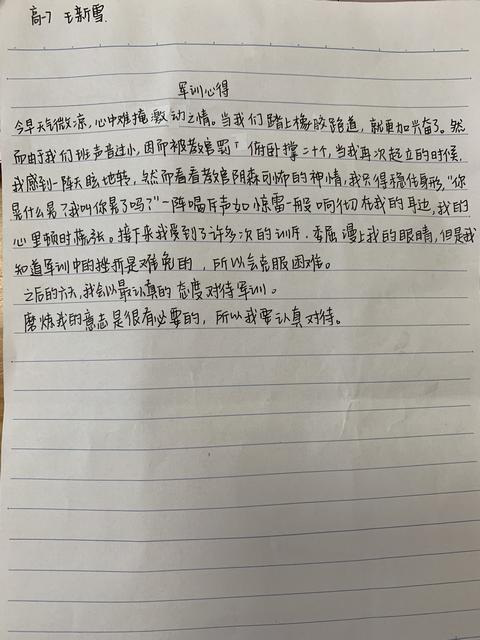 高一7 王新雪
军训心得
今早天气微凉,心中难掩激动之情。当我们踏上橡胶跑道,就更加兴奋了。然
而由于我们班声音过小,因而被教官罚了俯卧撑二十个,当我再次起立的时候,
我感到一阵天眩地转,然而看着教官阴森可怖的神情,我只得稳住身形,“你
晃什么晃?我叫你晃了吗?”一阵喝斥声如惊雷一般响彻在我的耳边,我的
心里顿时慌张。接下来我受到了许多次的训斥,委屈漫上我的眼睛,但是我
知道军训中的挫折是难免的,所以会克服困难。
之后的六天,我会以最认真的态度对待军训。
磨炼我的意志是很有必要的,所以我要认真对待。